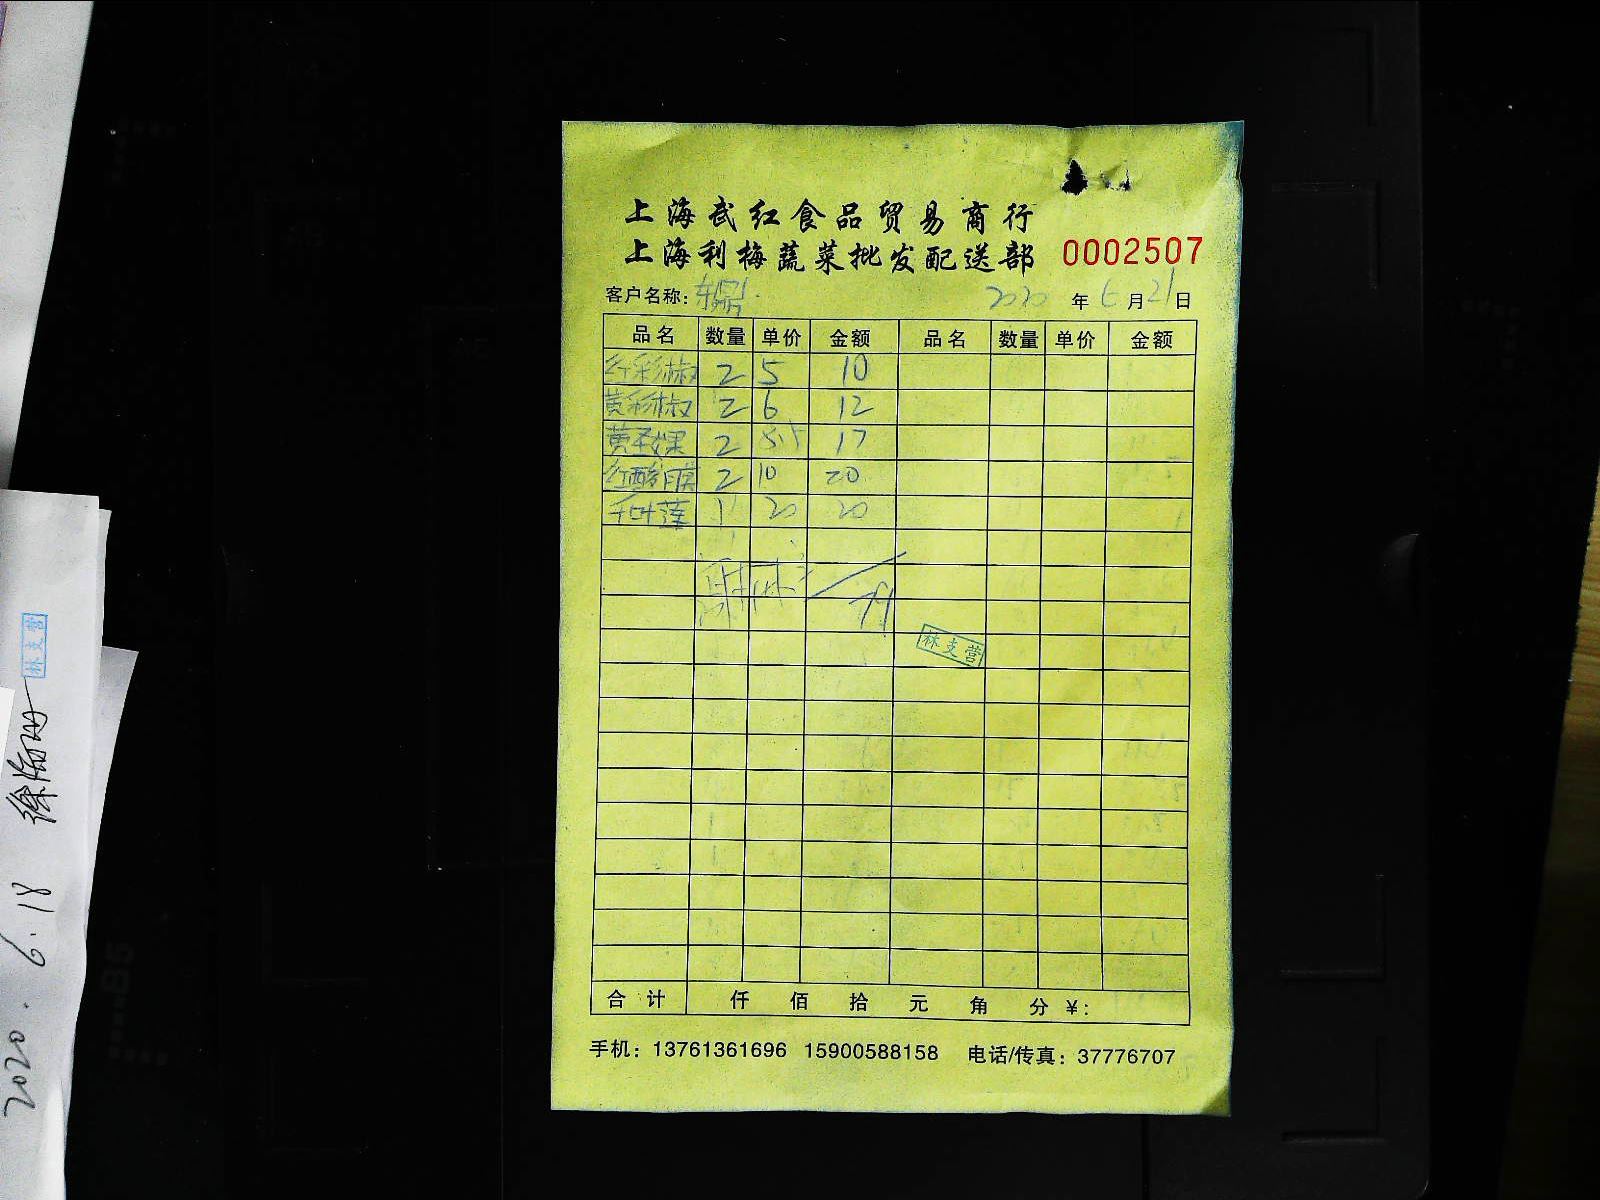 上海武红食品贸易商行
上海利梅蔬菜批发配送部 0002507
客户名称: 2020 年 6 月 21 日
品名 数量 单价 金额 品名 数量 单价 金额
红彩椒 2 5 10
黄彩椒 2 6 12
黄圣女果 2 8.5 17
红酸膜 2 10 20
千叶莲 1 20 20
79
林支营
合计 仟 佰 拾 元 角 分 ¥:
手机: 13761361696 15900588158 电话/传真: 37776707
林支营
2020. 6. 18
B5